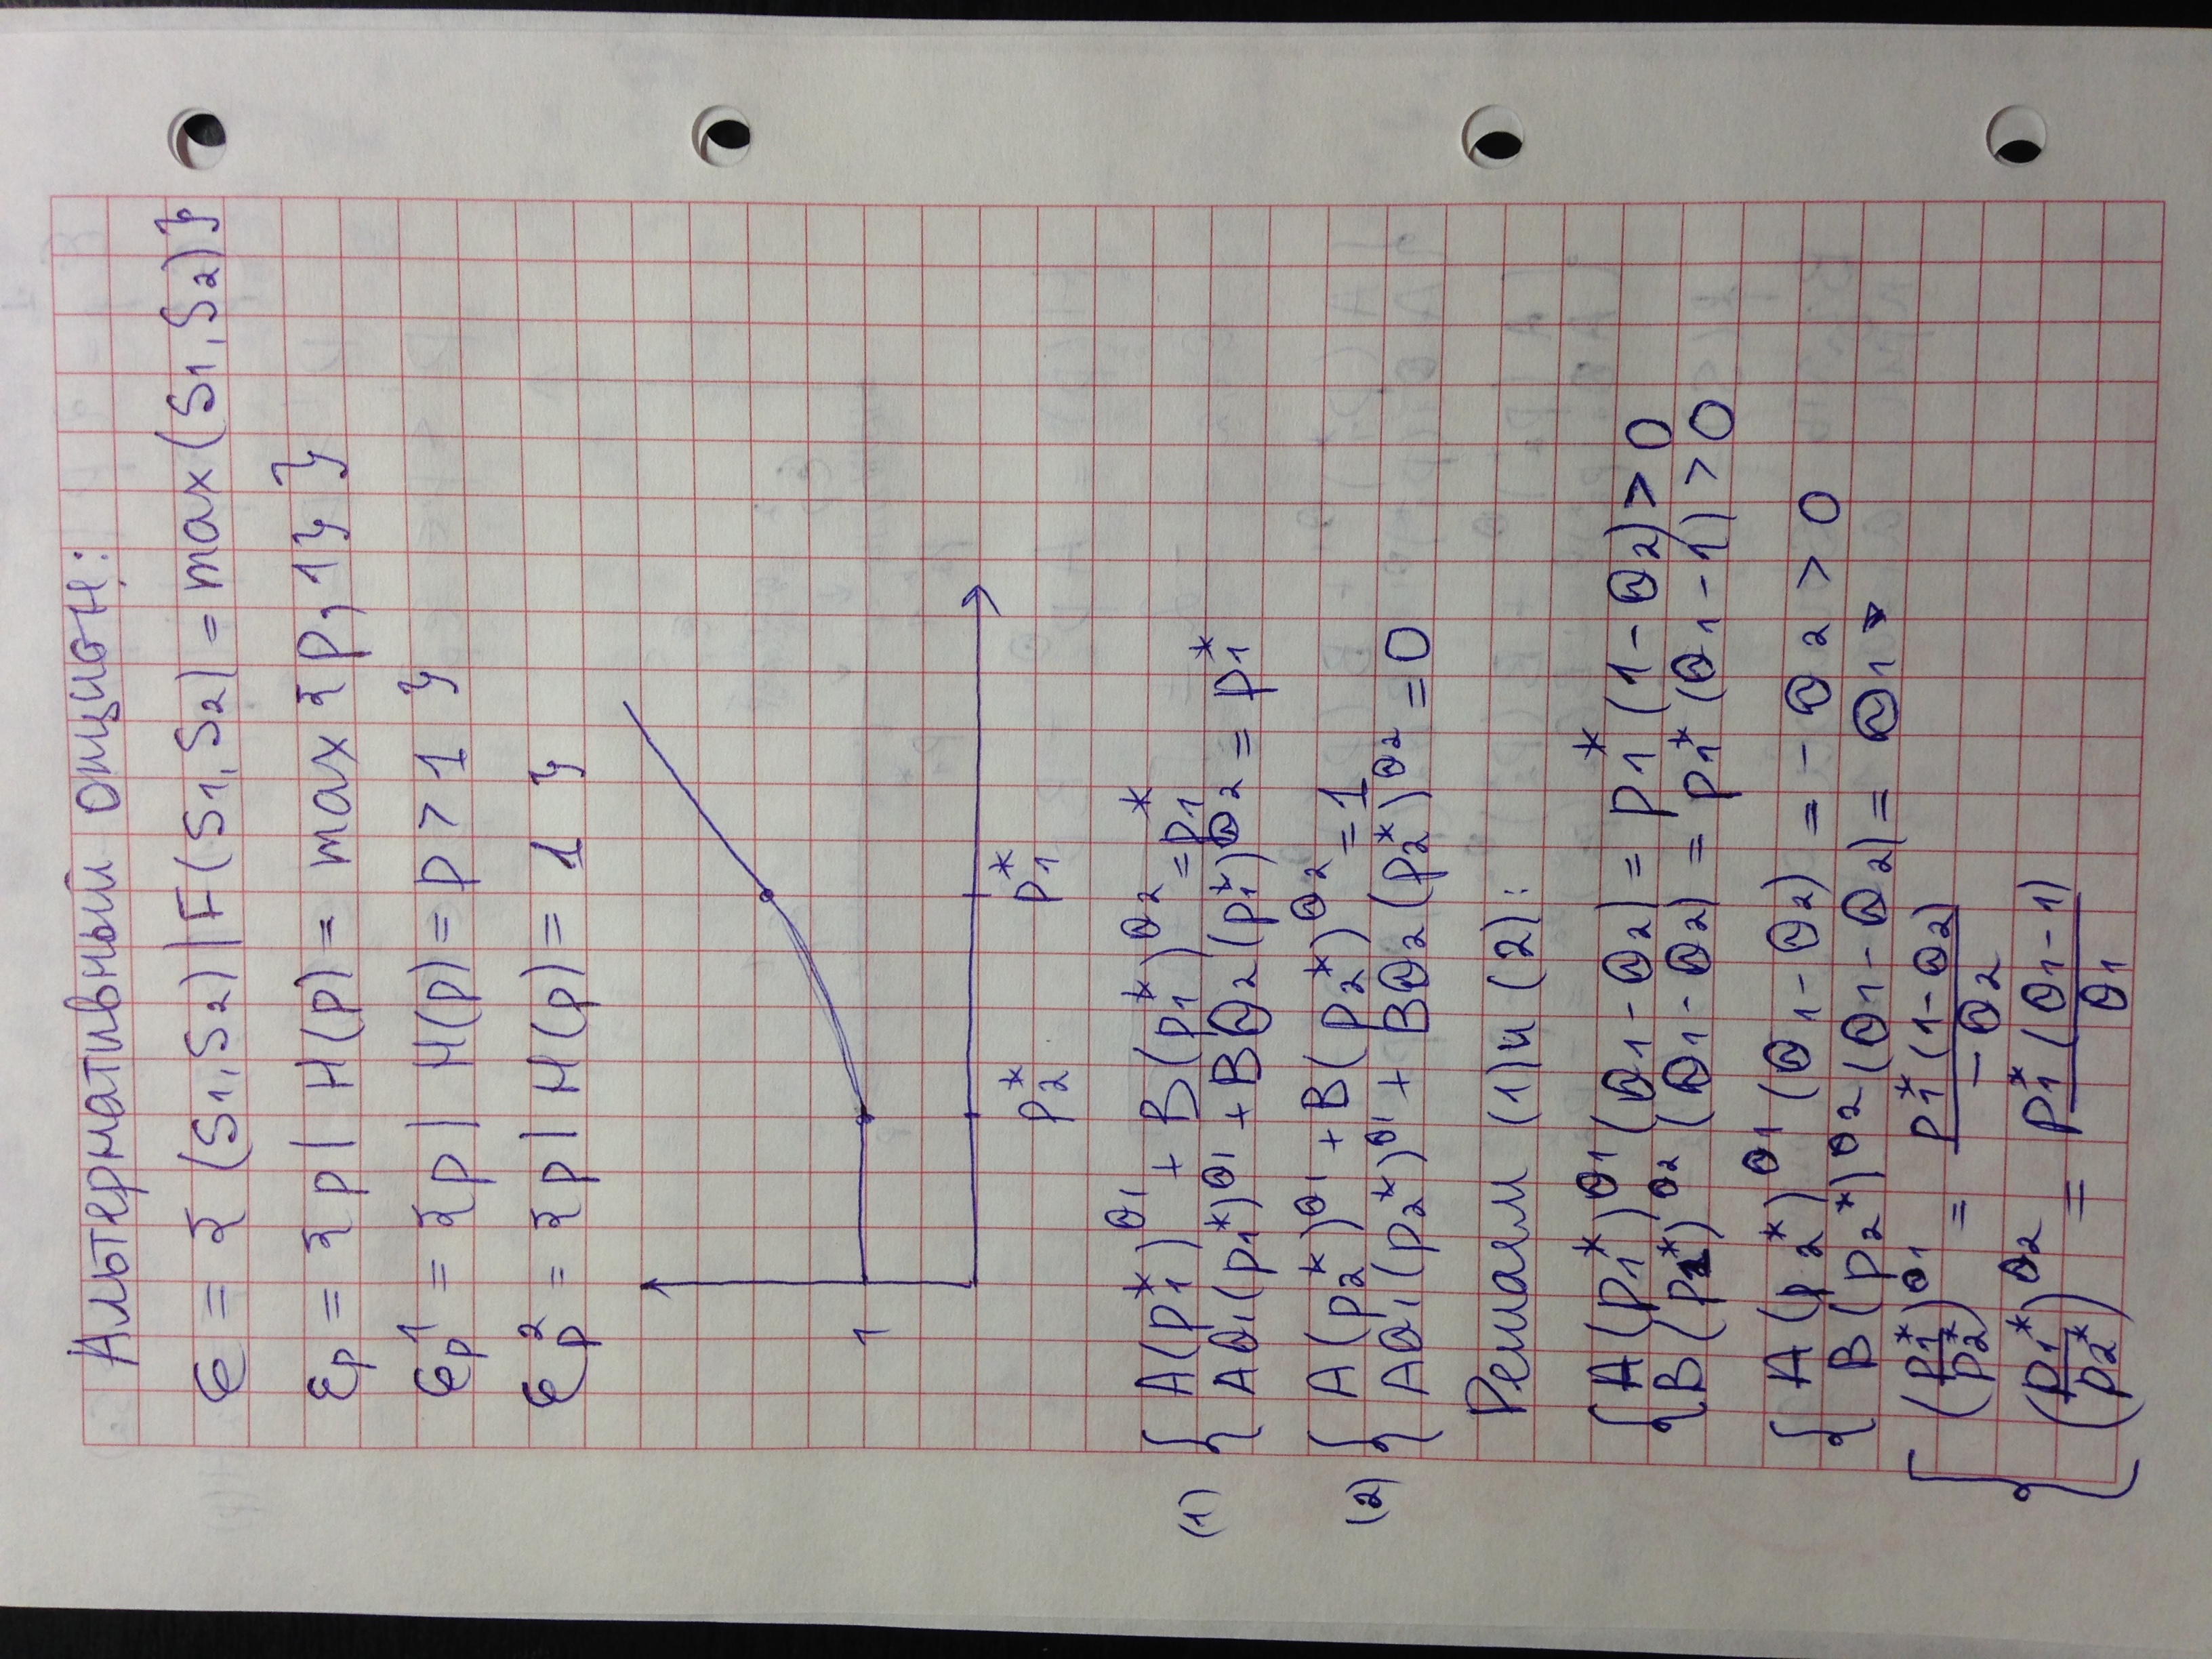 Альтернативный опцион:
ℰ = {(S₁,S₂) | F(S₁,S₂) = max(S₁,S₂)}
ℰₚ = {p | H(p) = max{p,1}}
ℰₚ¹ = {p | H(p) = p > 1}
ℰₚ² = {p | H(p) = 1}
1
p₂* p₁*
(1) { A(p₁*)^θ₁ + B(p₁*)^θ₂ = p₁*
Aθ₁(p₁*)^θ₁ + Bθ₂(p₁*)^θ₂ = p₁*
(2) { A(p₂*)^θ₁ + B(p₂*)^θ₂ = 1
Aθ₁(p₂*)^θ₁ + Bθ₂(p₂*)^θ₂ = 0
Решаем (1) и (2):
{ A(p₁*)^θ₁ (θ₁-θ₂) = p₁*(1-θ₂) > 0
B(p₁*)^θ₂ (θ₁-θ₂) = p₁*(θ₁-1) > 0
{ A(p₂*)^θ₁ (θ₁-θ₂) = -θ₂ > 0
B(p₂*)^θ₂ (θ₁-θ₂) = θ₁ >
{ (p₁*/p₂*)^θ₁ = p₁*(1-θ₂)/-θ₂
(p₁*/p₂*)^θ₂ = p₁*(θ₁-1)/θ₁